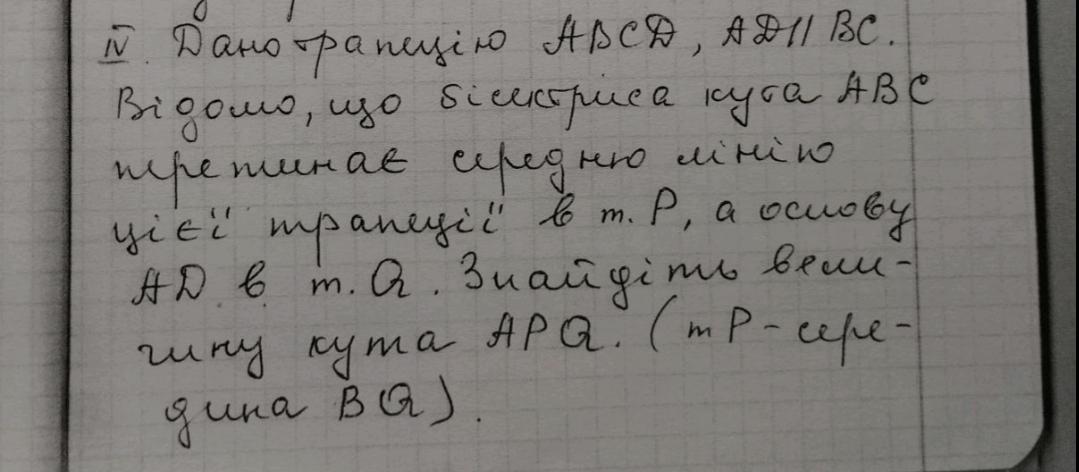 IV. Дано трапецію ABCD, AD || BC.
Відомо, що бісектриса кута ABC
перетинає середню лінію
цієї трапеції в т. P, а основу
AD в т. Q. Знайдіть вели-
чину кута APQ. (т P - сере-
дина BQ).